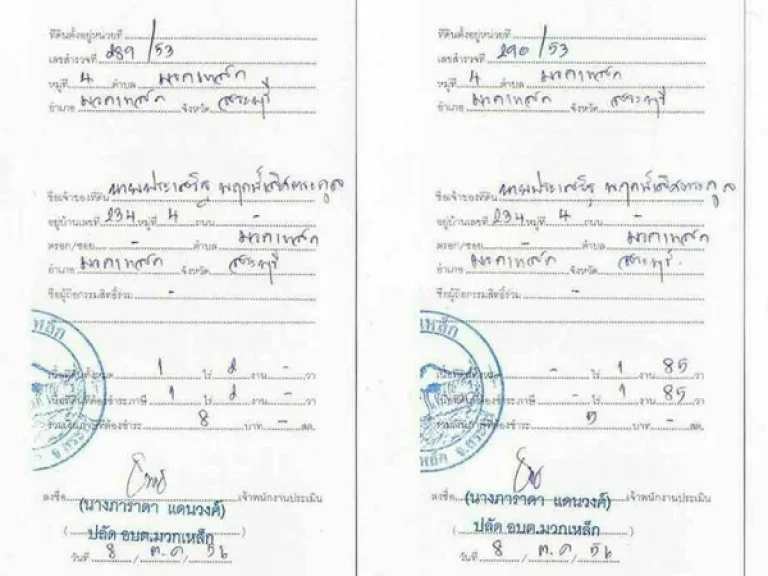 ที่ดินตั้งอยู่หน่วยที่
เลขสำรวจที่ 289/53
หมู่ที่ 4 ตำบล มวกเหล็ก
อำเภอ มวกเหล็ก จังหวัด สระบุรี
ชื่อเจ้าของที่ดิน นายประเสริฐ
อยู่บ้านเลขที่ 234 หมู่ที่ 4 ถนน -
ตรอก/ซอย - ตำบล มวกเหล็ก
อำเภอ มวกเหล็ก จังหวัด สระบุรี
ชื่อผู้ถือกรรมสิทธิ์ร่วม -
เนื้อที่ดินทั้งหมด 1 ไร่ 2 งาน - วา
เนื้อที่ดินที่ต้องชำระภาษี 1 ไร่ 2 งาน - วา
รวมเงินภาษีที่ต้องชำระ 8 บาท - สต.
ลงชื่อ เจ้าพนักงานประเมิน
(นางภาราดา แดนวงค์)
ปลัด อบต.มวกเหล็ก
วันที่ 8 / ต.ค / 56
ที่ดินตั้งอยู่หน่วยที่
เลขสำรวจที่ 290/53
หมู่ที่ 4 ตำบล มวกเหล็ก
อำเภอ มวกเหล็ก จังหวัด สระบุรี
ชื่อเจ้าของที่ดิน นายประเสริฐ
อยู่บ้านเลขที่ 234 หมู่ที่ 4 ถนน -
ตรอก/ซอย - ตำบล มวกเหล็ก
อำเภอ มวกเหล็ก จังหวัด สระบุรี
ชื่อผู้ถือกรรมสิทธิ์ร่วม -
เนื้อที่ดินทั้งหมด - ไร่ 1 งาน 85 วา
เนื้อที่ดินที่ต้องชำระภาษี - ไร่ 1 งาน 85 วา
รวมเงินภาษีที่ต้องชำระ 5 บาท - สต.
ลงชื่อ เจ้าพนักงานประเมิน
(นางภาราดา แดนวงค์)
ปลัด อบต.มวกเหล็ก
วันที่ 8 / ต.ค / 56